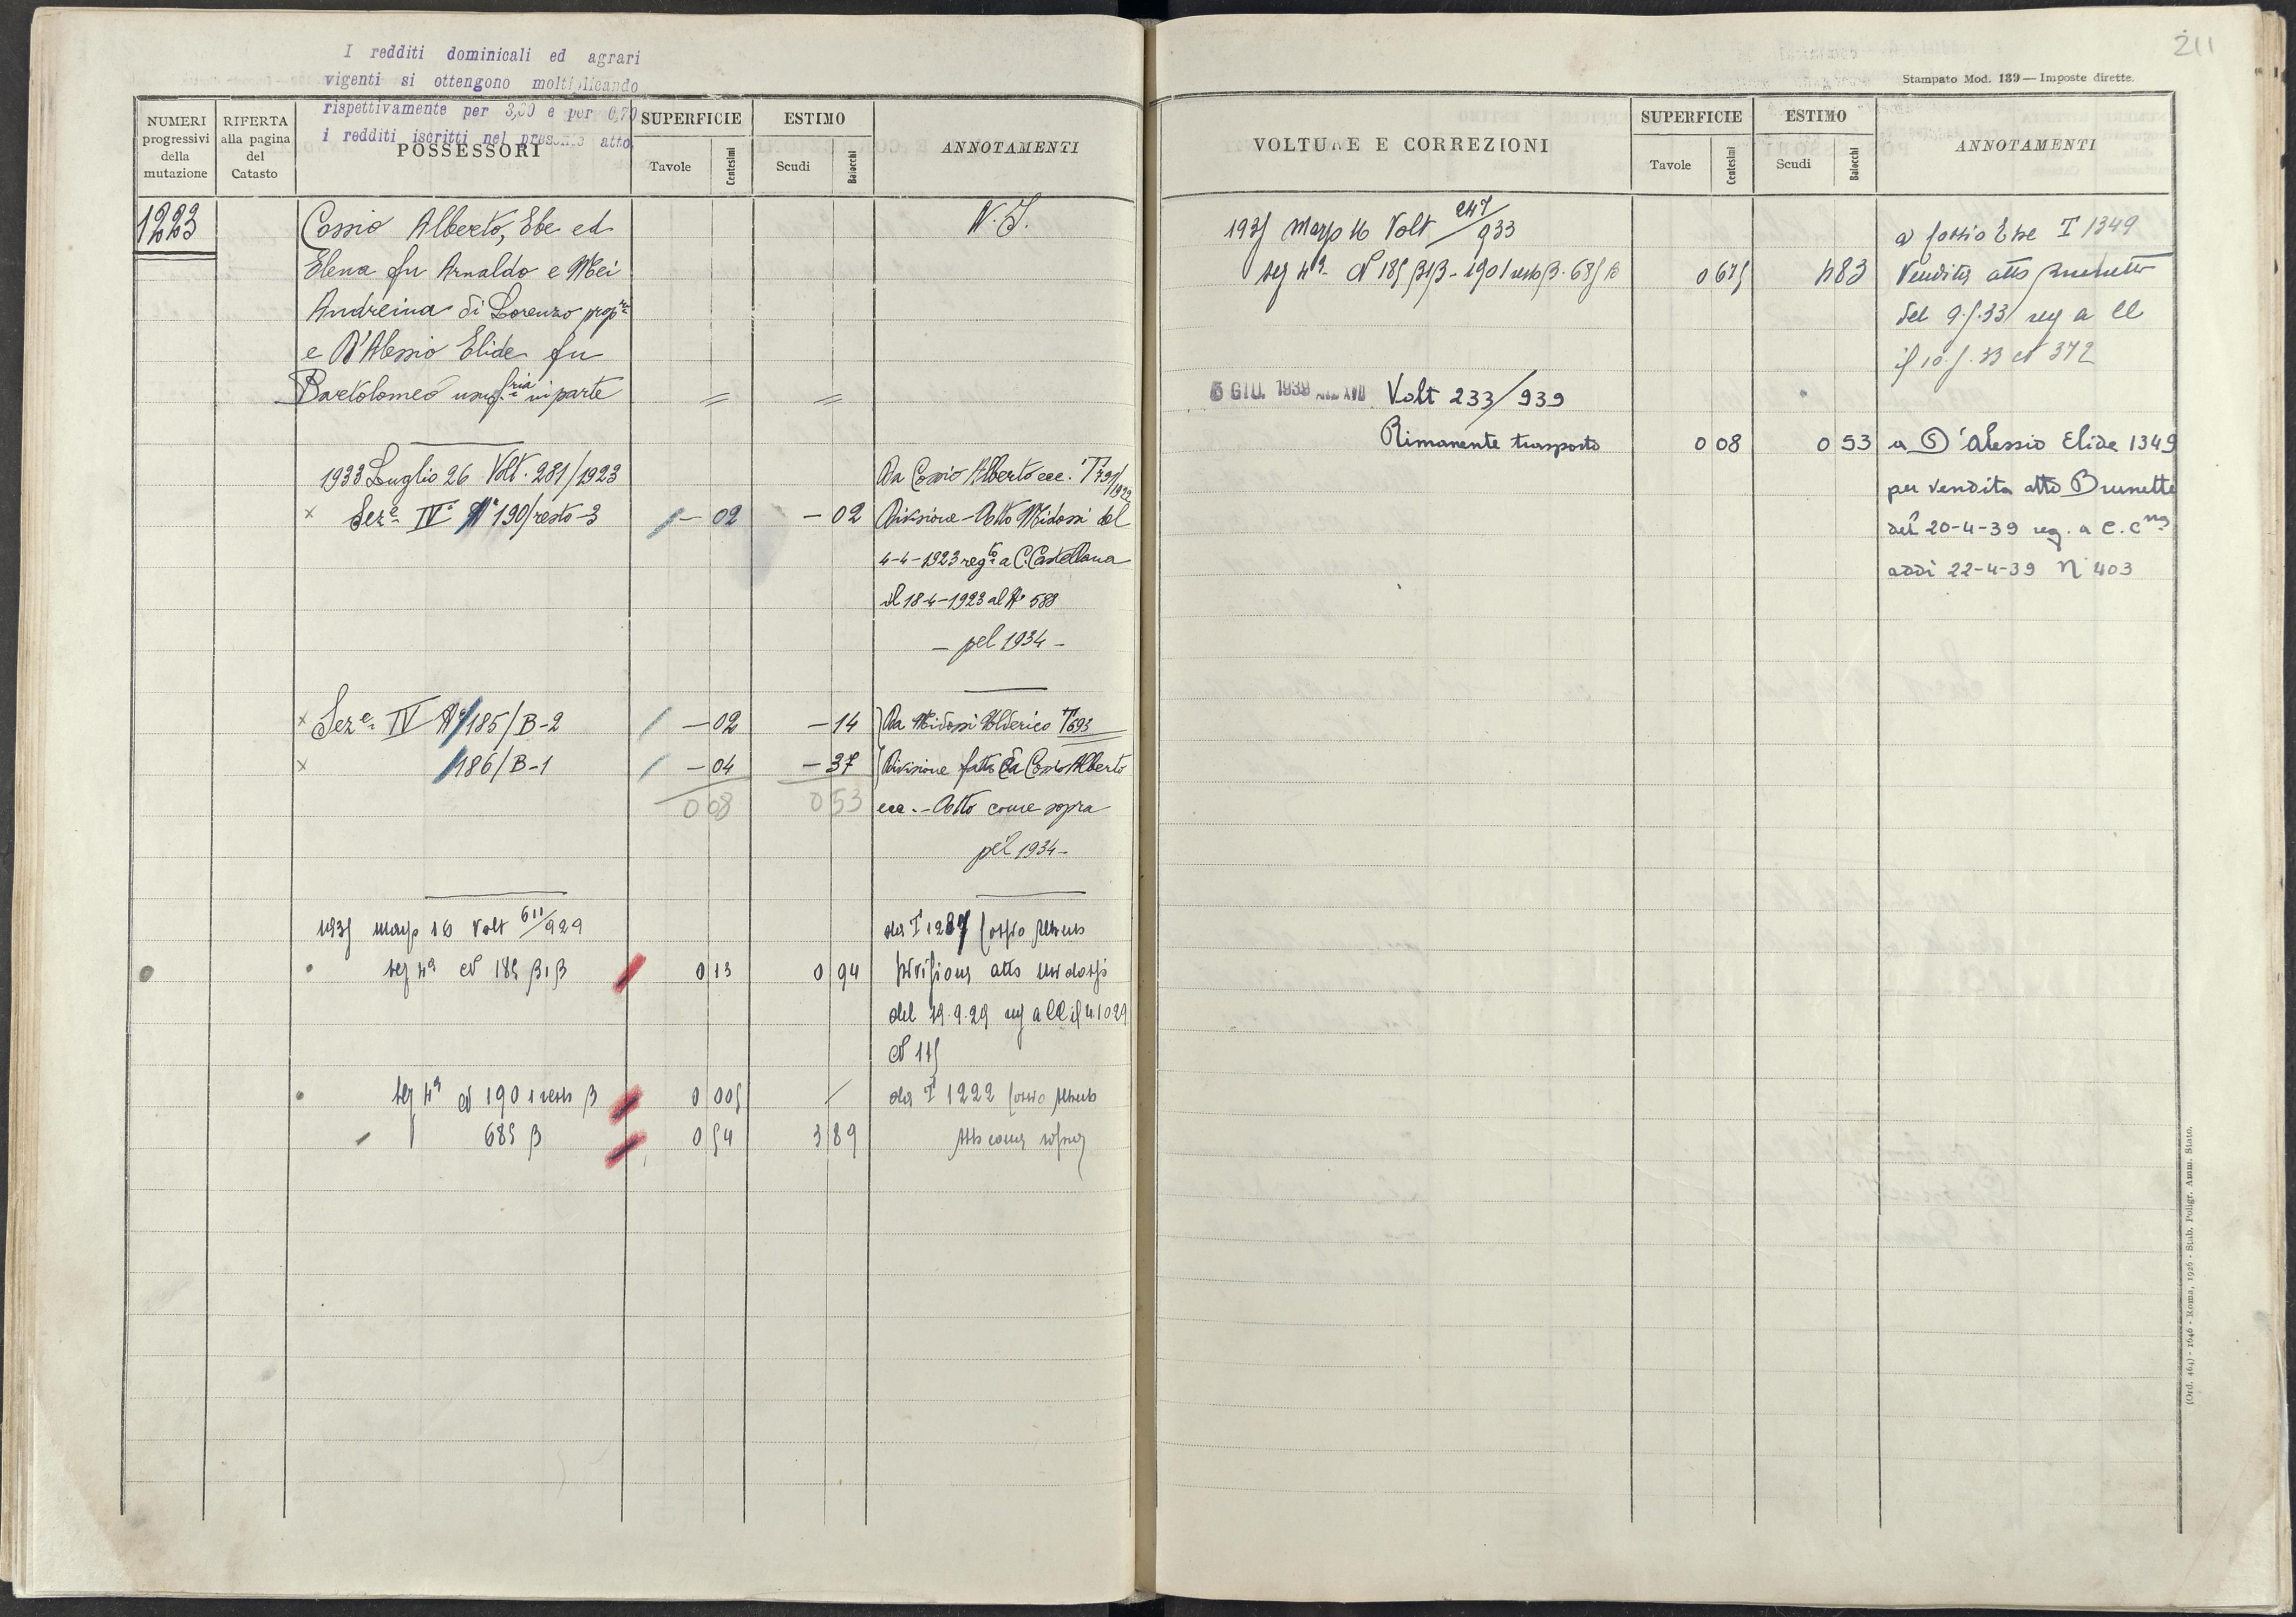 I redditi dominicali ed agrari
vigenti si ottengono moltiplicando
rispettivamente per 3,30 e per 0,70
i redditi iscritti nel presente atto
NUMERI progressivi della mutazione
RIFERTA alla pagina del Catasto
POSSESSORI
SUPERFICIE
Tavole Centesimi
ESTIMO
Scudi Baiocchi
ANNOTAMENTI
1223
Cossio Alberto, Ebe ed N. I.
Elena fu Arnaldo e Mei
Andreina di Lorenzo prop.ri
e D'Alessio Elide fu
Bartolomeo usuf.ria in parte = =
1933 Luglio 26 Volt. 281/1923 Da Cossio Alberto ecc. T 791/1922
x Sez.e IVa No 190/resto-3 – 02 – 02 Divisione – Atto Midossi del
4-4-1923 reg.to a C. Castellana
il 18-4-1923 al No 588
– pel 1934 –
x Sez.e IV No 185/B-2 – 02 – 14 Da Midossi Ulderico T 693
x 186/B-1 – 04 – 37 Divisione fatta da Cossio Alberto
0 08 0 53 ecc. – Atto come sopra
pel 1934 –
1935 marzo 16 Volt 611/929 da T 1287 Cossio Alberto
sez 4a N 185 B1B 0 13 0 94 Divisione atto Midossi
del 19.9.29 reg a CC il 4.10.29
N 115
sez 4a N 190 1 resto B 0 005 / da T 1222 Cossio Alberto
685 B 0 54 3 89 Atto come sopra
211
Stampato Mod. 189 — Imposte dirette.
VOLTURE E CORREZIONI
SUPERFICIE
Tavole Centesimi
ESTIMO
Scudi Baiocchi
ANNOTAMENTI
1935 Marzo 16 Volt 247/933 a Cossio Ebe T 1349
sez 4a N 185 B1B - 190 1 resto B - 685 B 0 675 4 83 Vendita atto Brunetti
del 9.5.33 reg a CC
il 10.5.33 N 372
6 GIU. 1939 ANNO XVII Volt 233/939
Rimanente trasporto 0 08 0 53 a D'Alessio Elide 1349
per vendita atto Brunetti
del 20-4-39 reg. a C. C.na
addi 22-4-39 N 403
(Ord. 464) - 1646 - Roma, 1926 - Stab. Poligr. Amm. Stato.